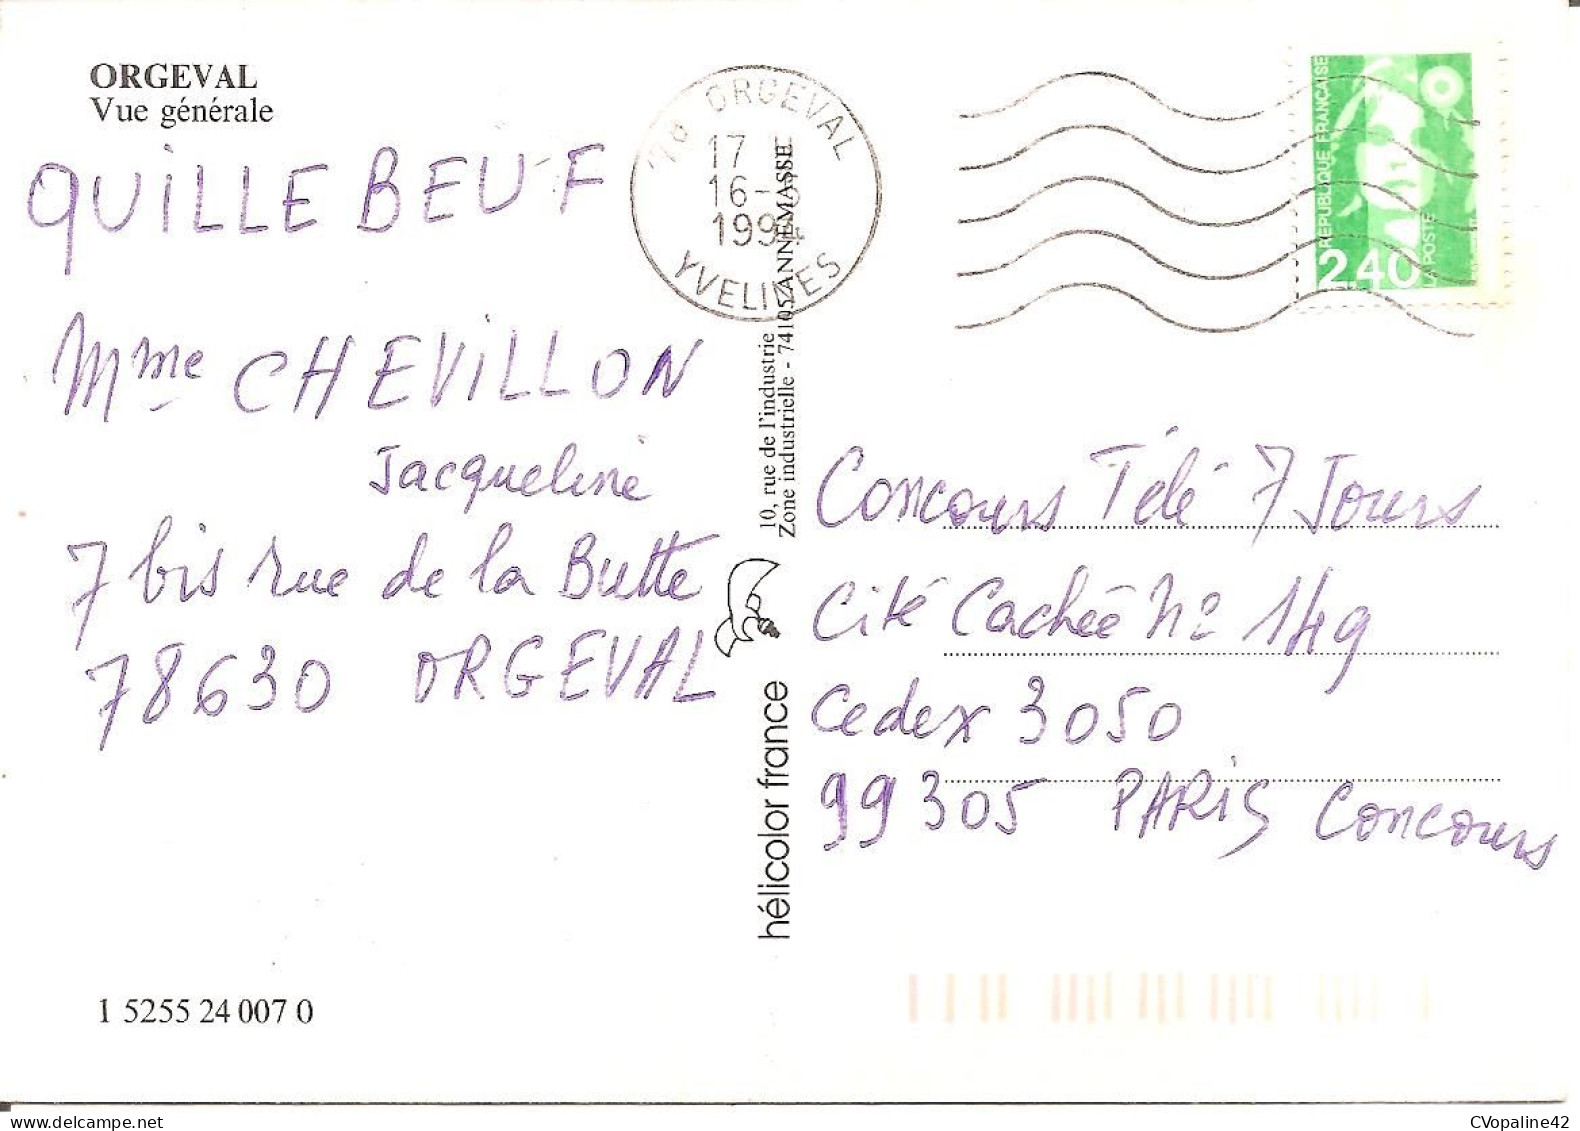 ORGEVAL
Vue générale
QUILLEBEUF
Mme CHEVILLON
Jacqueline
7 bis rue de la Butte
78630 ORGEVAL
1 5255 24 007 0
78 ORGEVAL
17
16-
1994
YVELINES
10, rue de l'industrie
Zone industrielle - 74105 ANNEMASSE
hélicolor france
REPUBLIQUE FRANÇAISE
2,40
LA POSTE
Concours Télé 7 Jours
Cité Cachée No 149
Cedex 3050
99305 PARIS Concours
CVopaline42